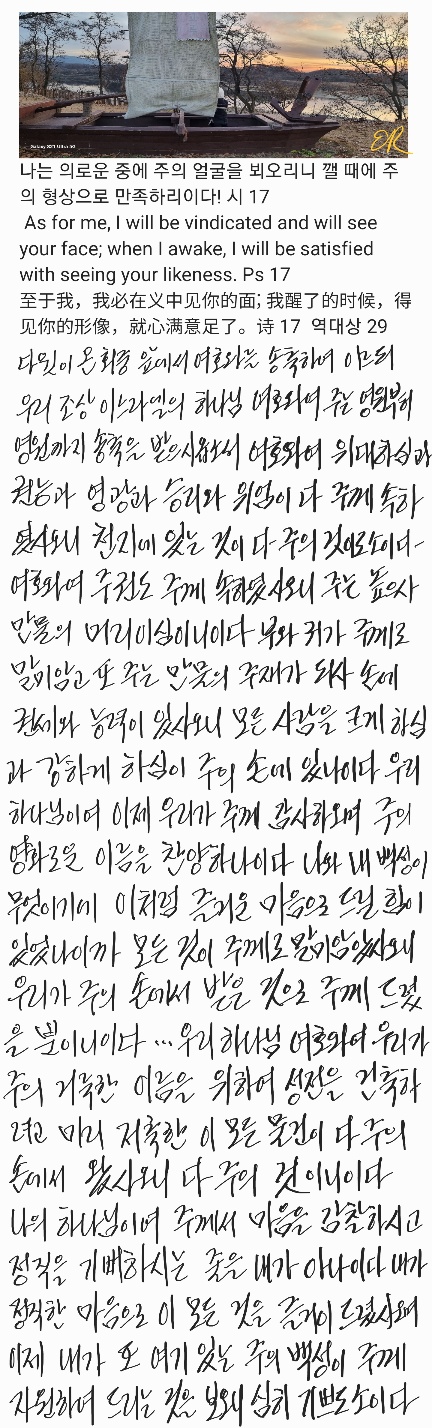 Galaxy S21 Ultra 5G
ER
나는 의로운 중에 주의 얼굴을 뵈오리니 깰 때에 주
의 형상으로 만족하리이다! 시 17
As for me, I will be vindicated and will see
your face; when I awake, I will be satisfied
with seeing your likeness. Ps 17
至于我，我必在义中见你的面; 我醒了的时候，得
见你的形像，就心满意足了。诗 17  역대상 29
다윗이 온 회중 앞에서 여호와를 송축하여 이르되
우리 조상 이스라엘의 하나님 여호와여 주는 영원부터
영원까지 송축을 받으시옵소서 여호와여 위대하심과
권능과 영광과 승리와 위엄이 다 주께 속하
였사오니 천지에 있는 것이 다 주의 것이로소이다
여호와여 주권도 주께 속하였사오니 주는 높으사
만물의 머리이심이니이다 부와 귀가 주께로
말미암고 또 주는 만물의 주재가 되사 손에
권세와 능력이 있사오니 모든 사람을 크게 하심
과 강하게 하심이 주의 손에 있나이다 우리
하나님이여 이제 우리가 주께 감사하오며 주의
영화로운 이름을 찬양하나이다 나와 내 백성이
무엇이기에 이처럼 즐거운 마음으로 드릴 힘이
있었나이까 모든 것이 주께로 말미암았사오니
우리가 주의 손에서 받은 것으로 주께 드렸
을 뿐이니이다 ... 우리 하나님 여호와여 우리가
주의 거룩한 이름을 위하여 성전을 건축하
려고 미리 저축한 이 모든 물건이 다 주의
손에서 왔사오니 다 주의 것이니이다
나의 하나님이여 주께서 마음을 감찰하시고
정직을 기뻐하시는 줄을 내가 아나이다 내가
정직한 마음으로 이 모든 것을 즐거이 드렸사오며
이제 내가 또 여기 있는 주의 백성이 주께
자원하여 드리는 것을 보오니 심히 기쁘도소이다